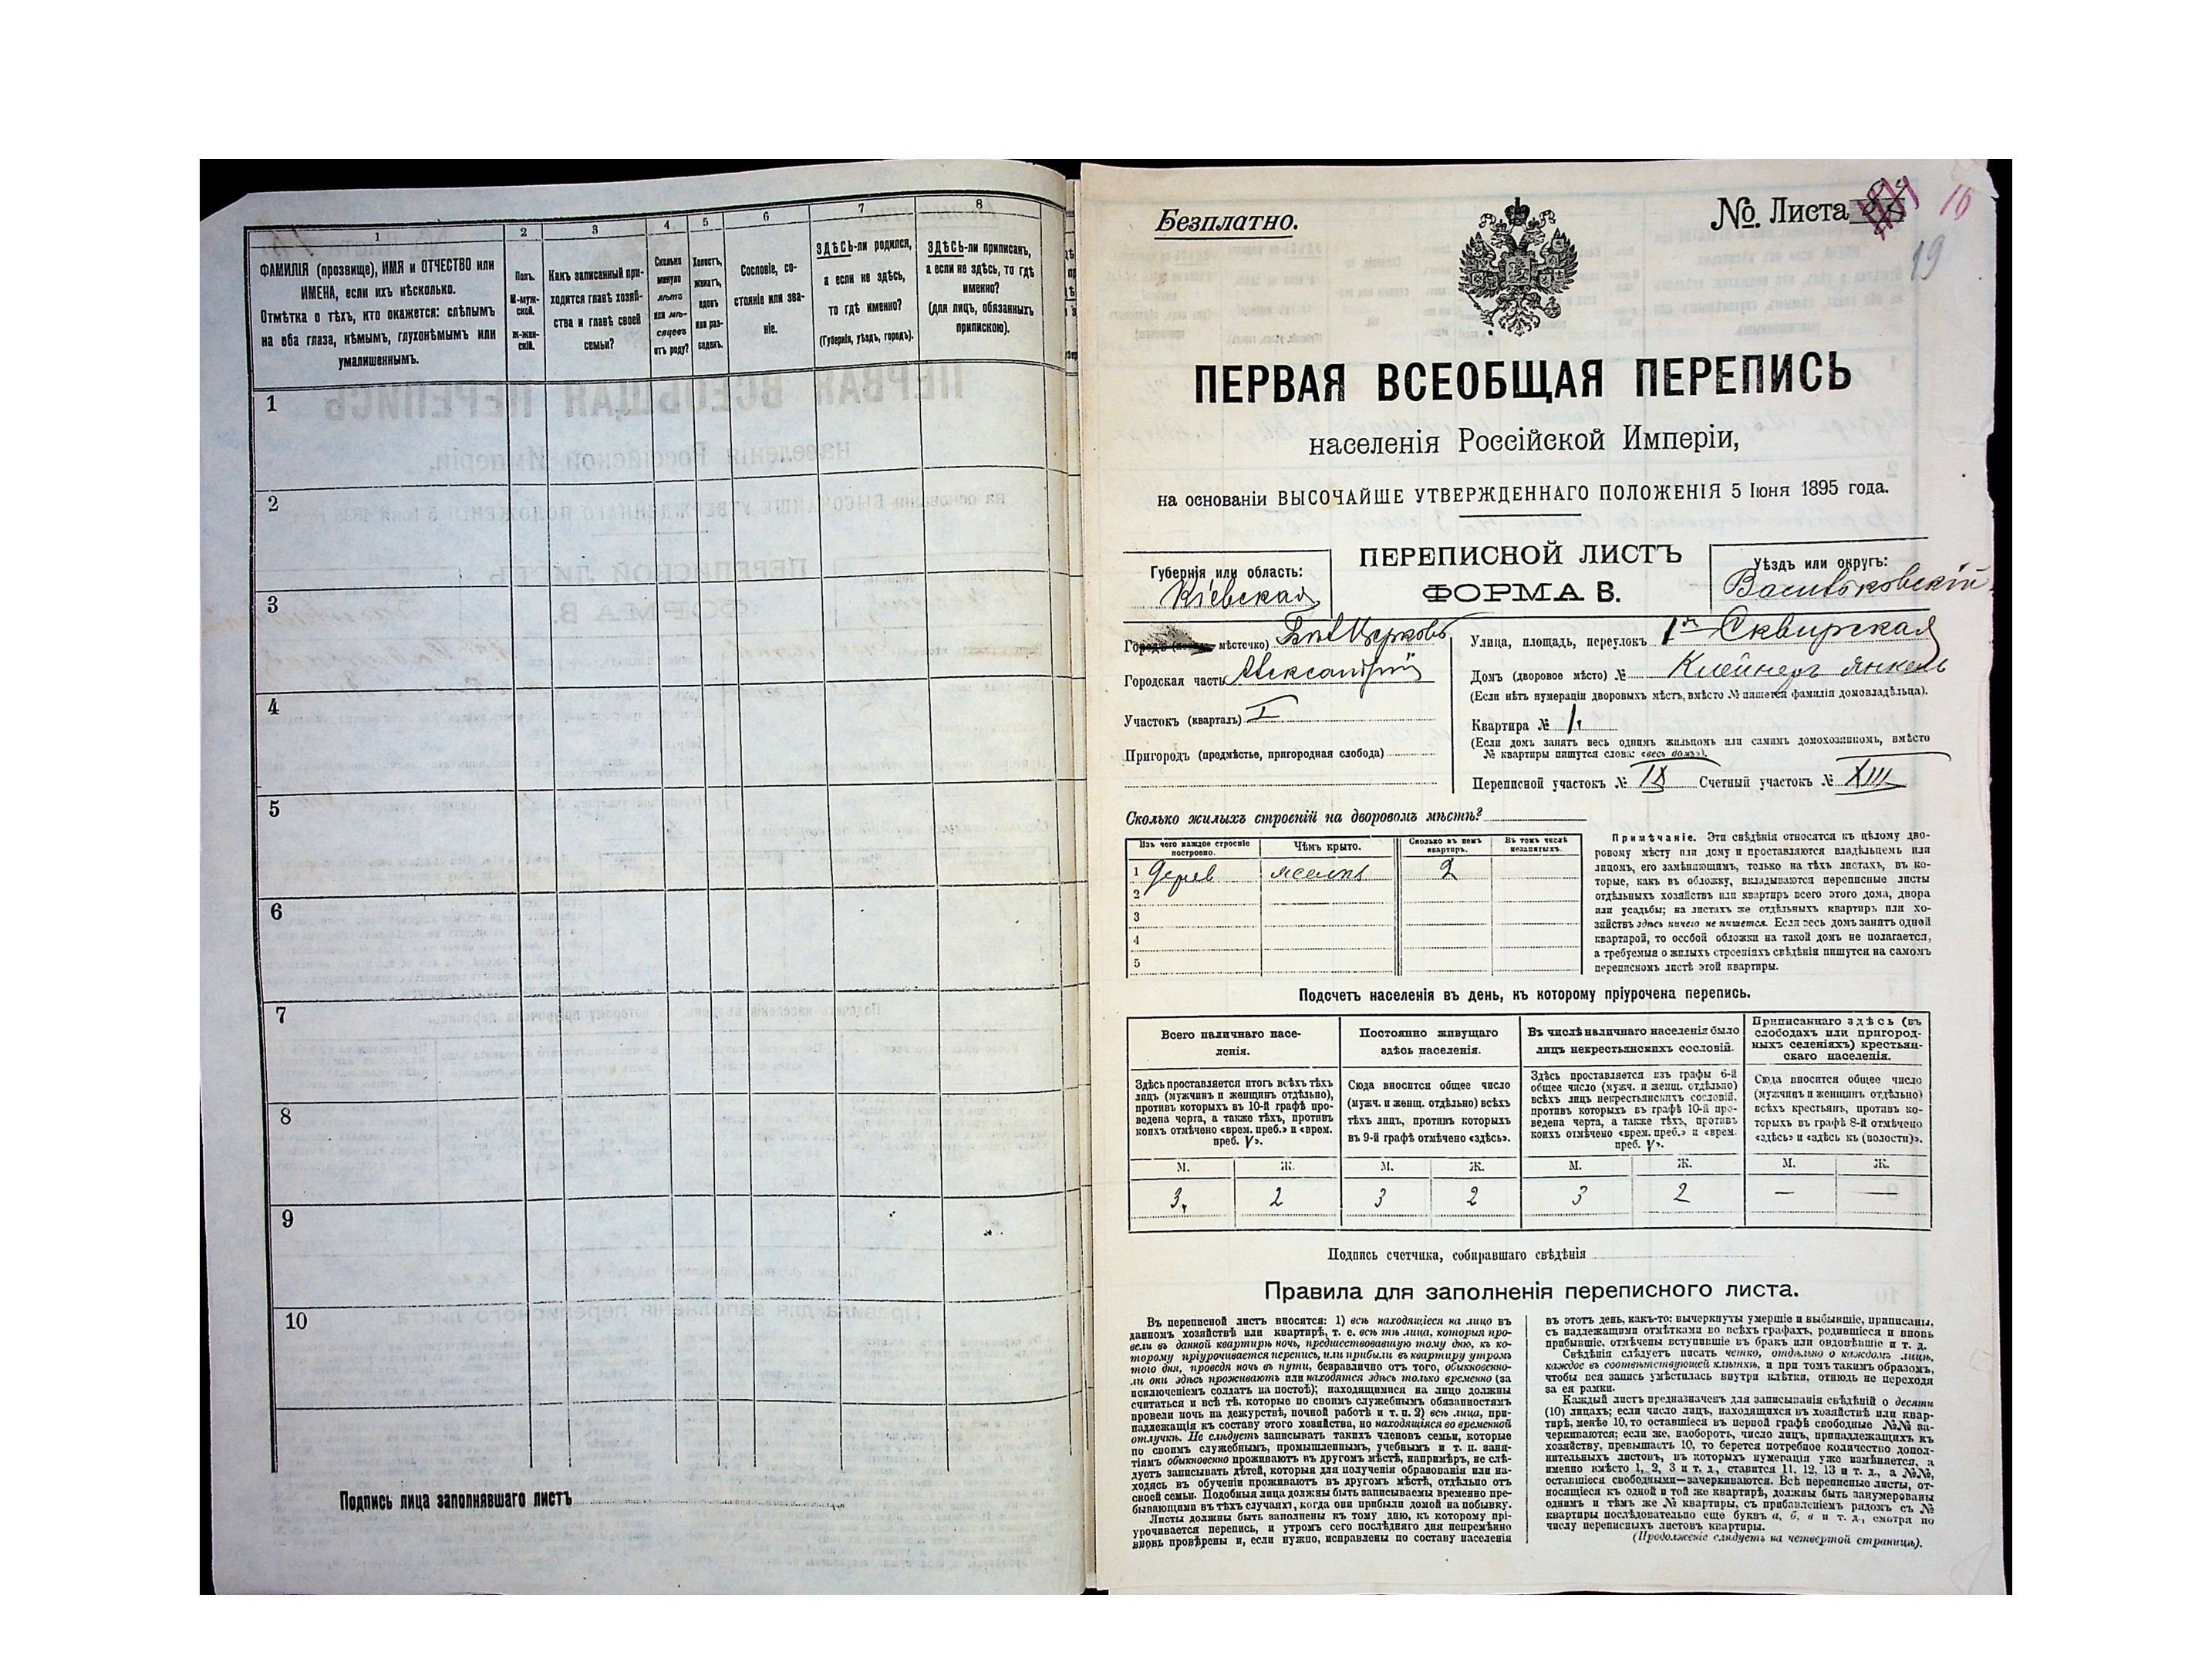 1
2
3
4
5
6
7
8
ФАМИЛІЯ (прозвище), ИМЯ и ОТЧЕСТВО или
ИМЕНА, если ихъ нѣсколько.
Отмѣтка о тѣхъ, кто окажется: слѣпымъ
на оба глаза, нѣмымъ, глухонѣмымъ или
умалишеннымъ.
Полъ.
М-муж-
ской.
Ж-жен-
скій.
Какъ записанный при-
ходится главѣ хозяй-
ства и главѣ своей
семьи?
Сколько
минуло
лѣтъ
или мѣ-
сяцевъ
отъ роду?
Холостъ,
женатъ,
вдовъ
или раз-
веденъ.
Сословіе, со-
стояніе или зва-
ніе.
ЗДѢСЬ-ли родился,
а если не здѣсь,
то гдѣ именно?
(Губернія, уѣздъ, городъ).
ЗДѢСЬ-ли приписанъ,
а если не здѣсь, то гдѣ
именно?
(для лицъ, обязанныхъ
припискою).
1
2
3
4
5
6
7
8
9
10
Подпись лица заполнявшаго листъ
Безплатно.
№ Листа
16
19
ПЕРВАЯ ВСЕОБЩАЯ ПЕРЕПИСЬ
населенія Россійской Имперіи,
на основаніи ВЫСОЧАЙШЕ УТВЕРЖДЕННАГО ПОЛОЖЕНІЯ 5 Іюня 1895 года.
Губернія или область:
Кіевская
ПЕРЕПИСНОЙ ЛИСТЪ
ФОРМА В.
Уѣздъ или округъ:
Васильковскій
Городъ местечко) Бѣл Церковь
Городская часть
Участокъ (кварталъ) I
Пригородъ (предмѣстье, пригородная слобода)
Улица, площадь, переулокъ 1я Сквирская
Домъ (дворовое мѣсто) № Клейнеръ Янкель
(Если нѣтъ нумераціи дворовыхъ мѣстъ, вмѣсто № пишется фамилія домовладѣльца).
Квартира № 1.
(Если домъ занятъ весь однимъ жильцомъ или самимъ домохозяиномъ, вмѣсто
№ квартиры пишутся слова: «весь домъ»).
Переписной участокъ № IX Счетный участокъ № XIII
Сколько жилыхъ строеній на дворовомъ мѣстѣ?
Изъ чего каждое строеніе
построено.
Чѣмъ крыто.
Сколько въ немъ
квартиръ.
Въ томъ числѣ
незанятыхъ.
1 Дерев желѣз 2
2
3
4
5
Примѣчаніе. Эти свѣдѣнія относятся къ цѣлому дво-
ровому мѣсту или дому и проставляются владѣльцемъ или
лицомъ, его замѣняющимъ, только на тѣхъ листахъ, въ ко-
торые, какъ въ обложку, вкладываются переписные листы
отдѣльныхъ хозяйствъ или квартиръ всего этого дома, двора
или усадьбы; на листахъ же отдѣльныхъ квартиръ или хо-
зяйствъ здѣсь ничего не пишется. Если весь домъ занятъ одной
квартирой, то особой обложки на такой домъ не полагается,
а требуемыя о жилыхъ строеніяхъ свѣдѣнія пишутся на самомъ
переписномъ листѣ этой квартиры.
Подсчетъ населенія въ день, къ которому пріурочена перепись.
Всего наличнаго насе-
ленія.
Постоянно живущаго
здѣсь населенія.
Въ числѣ наличнаго населенія было
лицъ некрестьянскихъ сословій.
Приписаннаго здѣсь (въ
слободахъ или пригород-
ныхъ селеніяхъ) крестьян-
скаго населенія.
Здѣсь проставляется итогъ всѣхъ тѣхъ
лицъ (мужчинъ и женщинъ отдѣльно),
противъ которыхъ въ 10-й графѣ про-
ведена черта, а также тѣхъ, противъ
коихъ отмѣчено «врем. преб.» и «врем.
преб. V».
Сюда вносится общее число
(мужч. и женщ. отдѣльно) всѣхъ
тѣхъ лицъ, противъ которыхъ
въ 9-й графѣ отмѣчено «здѣсь».
Здѣсь проставляется изъ графы 6-й
общее число (мужч. и женщ. отдѣльно)
всѣхъ лицъ некрестьянскихъ сословій,
противъ которыхъ въ графѣ 10-й про-
ведена черта, а также тѣхъ, противъ
коихъ отмѣчено «врем. преб.» и «врем.
преб. V».
Сюда вносится общее число
(мужчинъ и женщинъ отдѣльно)
всѣхъ крестьянъ, противъ ко-
торыхъ въ графѣ 8-й отмѣчено
«здѣсь» и «здѣсь къ (волости)».
М. Ж. М. Ж. М. Ж. М. Ж.
3 2 3 2 3 2 — —
Подпись счетчика, собиравшаго свѣдѣнія
Правила для заполненія переписного листа.
Въ переписной листъ вносятся: 1) всѣ находящіеся на лицо въ
данномъ хозяйствѣ или квартирѣ, т. е. всѣ тѣ лица, которыя про-
вели въ данной квартирѣ ночь, предшествовавшую тому дню, къ ко-
торому пріурочивается перепись, или прибыли въ квартиру утромъ
того дня, проведя ночь въ пути, безразлично отъ того, обыкновенно-
ли они здѣсь проживаютъ или находятся здѣсь только временно (за
исключеніемъ солдатъ на постоѣ); находящимися на лицо должны
считаться и всѣ тѣ, которые по своимъ служебнымъ обязанностямъ
провели ночь на дежурствѣ, ночной работѣ и т. п. 2) всѣ лица, при-
надлежащія къ составу этого хозяйства, но находящіяся во временной
отлучкѣ. Не слѣдуетъ записывать такихъ членовъ семьи, которые
по своимъ служебнымъ, промышленнымъ, учебнымъ и т. п. заня-
тіямъ обыкновенно проживаютъ въ другомъ мѣстѣ, напримѣръ, не слѣ-
дуетъ записывать дѣтей, которыя для полученія образованія или на-
ходясь въ обученіи проживаютъ въ другомъ мѣстѣ, отдѣльно отъ
своей семьи. Подобныя лица должны быть записываемы временно пре-
бывающими въ тѣхъ случаяхъ, когда они прибыли домой на побывку.
Листы должны быть заполнены къ тому дню, къ которому прі-
урочивается перепись, и утромъ сего послѣдняго дня непремѣнно
вновь провѣрены и, если нужно, исправлены по составу населенія
въ этотъ день, какъ-то: вычеркнуты умершіе и выбывшіе, приписаны,
съ надлежащими отмѣтками во всѣхъ графахъ, родившіеся и вновь
прибывшіе, отмѣчены вступившіе въ бракъ или овдовѣвшіе и т. д.
Свѣдѣнія слѣдуетъ писать четко, отдѣльно о каждомъ лицѣ,
каждое въ соотвѣтствующей клѣткѣ, и при томъ такимъ образомъ,
чтобы вся запись умѣстилась внутри клѣтки, отнюдь не переходя
за ея рамки.
Каждый листъ предназначенъ для записыванія свѣдѣній о десяти
(10) лицахъ; если число лицъ, находящихся въ хозяйствѣ или квар-
тирѣ, менѣе 10, то оставшіеся въ первой графѣ свободные №№ за-
черкиваются; если же, наоборотъ, число лицъ, принадлежащихъ къ
хозяйству, превышаетъ 10, то берется потребное количество допол-
нительныхъ листовъ, въ которыхъ нумерація уже измѣняется, а
именно вмѣсто 1, 2, 3 и т. д., ставится 11, 12, 13 и т. д., а №№,
оставшіеся свободными—зачеркиваются. Всѣ переписные листы, от-
носящіеся къ одной и той же квартирѣ, должны быть занумерованы
однимъ и тѣмъ же № квартиры, съ прибавленіемъ рядомъ съ №
квартиры послѣдовательно еще буквъ а, б, в и т. д., смотря по
числу переписныхъ листовъ квартиры.
(Продолженіе слѣдуетъ на четвертой страницѣ).